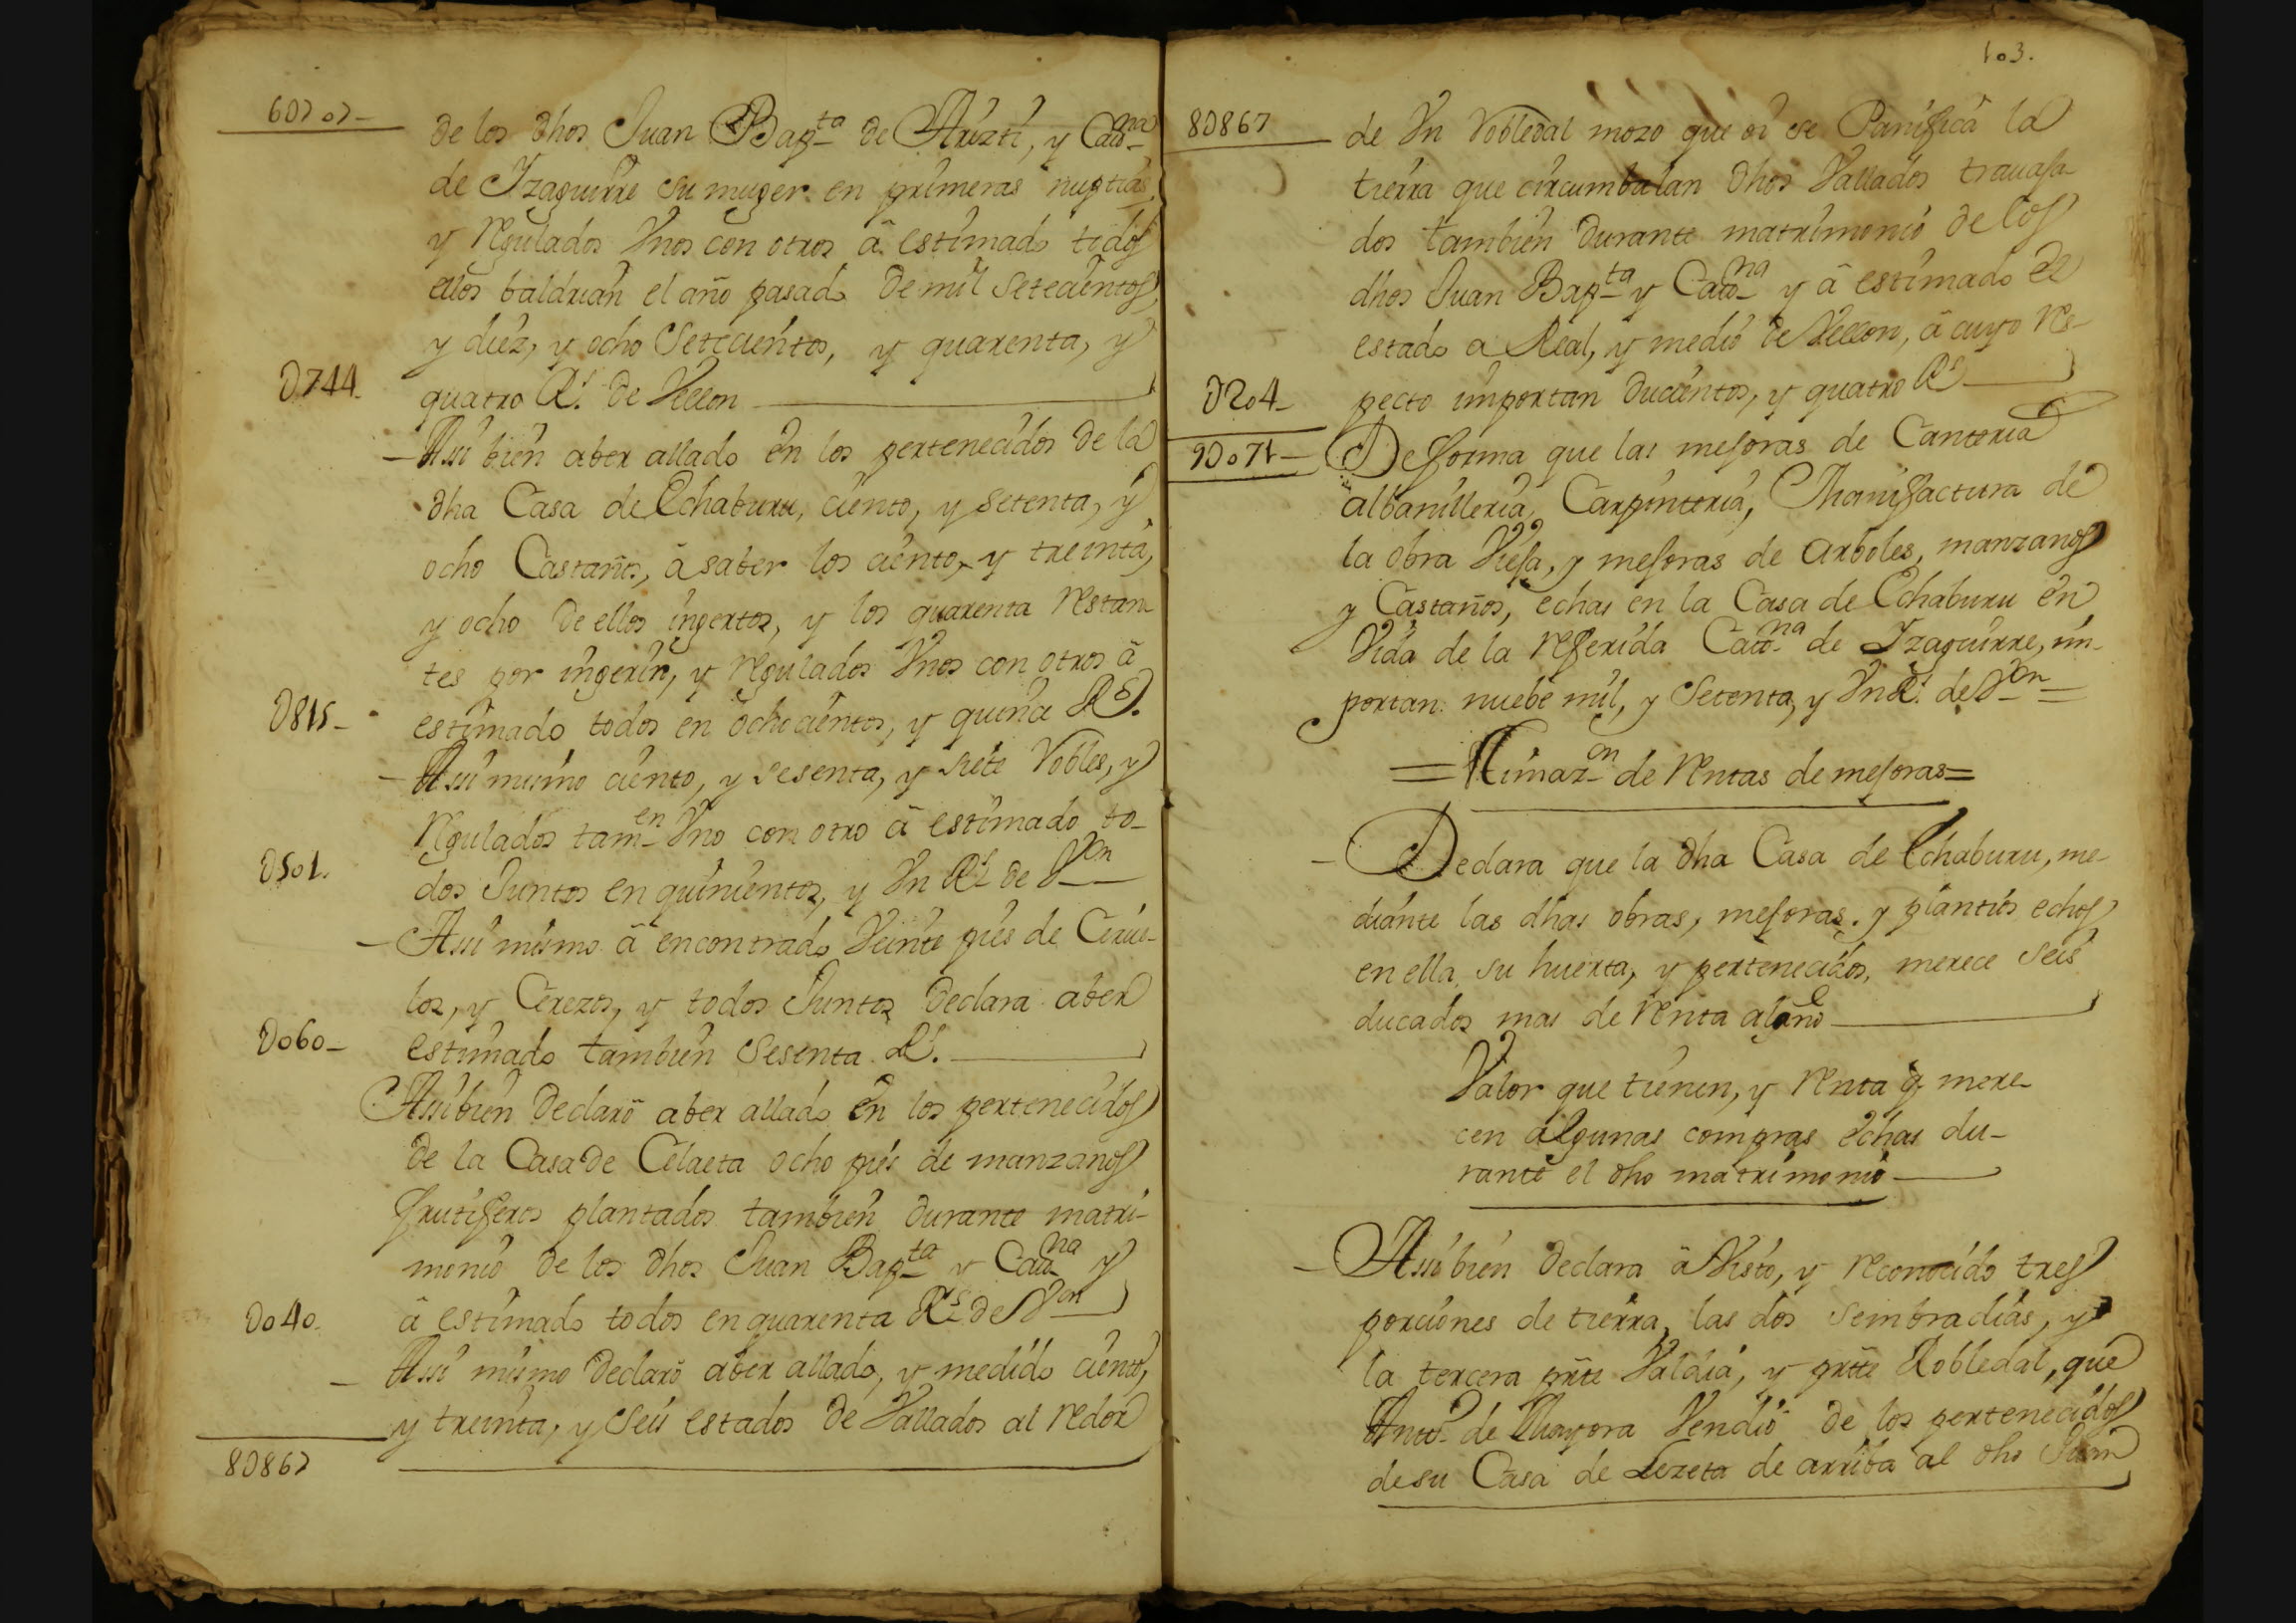 60707
de los dhos Juan Bapta de Aruzti, y Cana
de Izaguirre su muger en primeras nuptias,
y regulados Vnos con otros â estimado todos
ellos baldrian el año pasado de mil Setecientos,
y diez, y ocho Setecientos, y quarenta, y
D744. quatro Rs. de Vellon
Assi bien aber allado en los pertenecidos de la
dha Casa de Echaburu, ciento, y setenta, y
ocho Castaños, â saber los ciento, y treinta,
y ocho de ellos ingertos, y los quarenta restan
tes por ingerir, y regulados Vnos con otros â
D815 estimado todos en ochocientos, y quince Rs.
Assi mismo ciento, y sesenta, y siete Robles, y
regulados tamen Vno con otro â estimado to-
D501. dos Juntos en quinientos, y Vn Rl de Von
Assi mismo â encontrado Veinte pies de Cirue-
los, y Cerezos, y todos Juntos declara aber
D060 estimado tambien Sesenta Rs.
Assibien declarô aber allado en los pertenecidos
de la Casa de Celaeta ocho pies de manzanos
frutiferos plantados tambien durante matri-
monio de los dhos Juan Bapta y Cana y
D040. â estimado todos en quarenta Rs de Von
Assi mismo declarô aber allado, y medido ciento,
y treinta, y seis estados de Vallados al redor
8D867
103.
8D867 de Vn Robledal mozo que oi se Panificâ la
tierra que circumbalan dhos Vallados trauaja-
dos tambien durante matrimonio de los
dhos Juan Bapta y Cana y â estimado el
estado a Real, y medio de Vellon, â cuyo res-
D204 pecto importan ducientos, y quatro Rs
9D071 De forma que las mejoras de Canteria
albanilleria, Carpinteria, Manifactura de
la obra Vieja, y mejoras de arboles, manzanos
y Castaños, echas en la Casa de Echaburu en
Vida de la referida Cana de Izaguirre, im-
portan nuebe mil, y Setenta, y Vn Rl. de Von
=Estimazon de rentas de mejoras=
Declara que la dha Casa de Echaburu, me-
diante las dhas obras, mejoras, y plantios echos
en ella, su huerta, y pertenecidos, merece seis
ducados mas de renta al año
Valor que tienen, y renta q mere-
cen algunas compras echas du-
rante el dho matrimonio
Assibien declara â Visto, y reconocido tres
porciones de tierra, las dos sembradias, y
la tercera prte Valdia, y prtte Robledal, que
Anto de Mayora Vendió de los pertenecidos
de su Casa de Lezeta de arriba al dho Juan